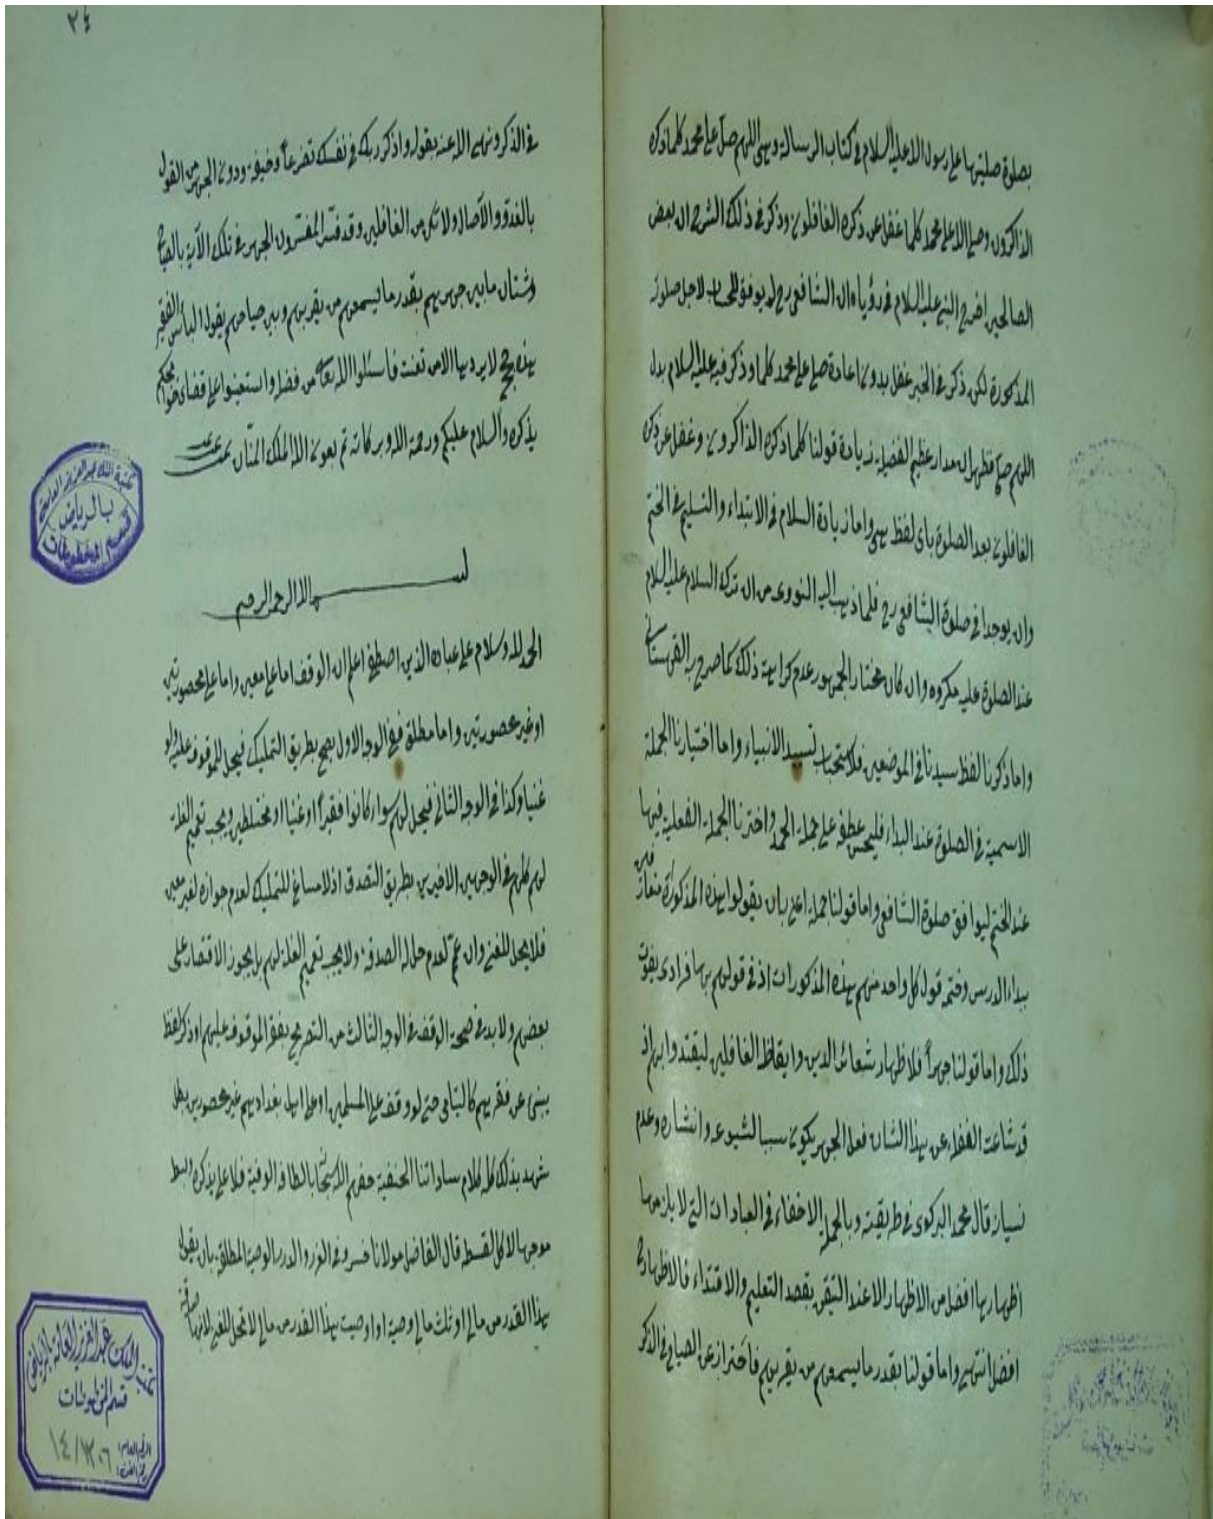 بصلوة صليتها على رسول الله عليه السلام في كتاب الرسالة وهي اللهم صل على محمد كلما ذكره
الذاكرون وصلى الله على محمد كلما غفل عن ذكره الغافلون وذكر في ذلك الشرح ان بعض
الصالحين النبي عليه السلام في رؤياه ان الشافعي رح لم يوقف للحساب لاجل صلوته
المذكورة لكن ذكر في الخبر غفل بدون اعادة صلى على محمد كلما وذكر فيه عليه السلام بدل
اللهم صل فظهر ان مدار عظيم الفضيلة زيادة قولنا كلما ذكره الذاكرون وغفل عن ذكره
الغافلون بعد الصلوة باى لفظ هي واما زيادة السلام في الابتداء والتسليم في الختم
وان يوجدا في صلوة الشافعي رح فلما ذهب اليه النووى من ان ترك السلام عليه السلام
عند الصلوة عليه مكروه وان كان مختار الجمهور عدم كراهة ذلك كما صرح به القهستانى
واما ذكرنا لفظ سيدنا في الموضعين فلاستحباب تسييد الانبياء واما اختيارنا الجملة
الاسمية في الصلوة عند البداء فليحسن عطفه على جملة الحمد واخترنا الجملة الفعلية فيها
عند الختم ليوافق صلوة الشافعي واما قولنا جملة اعنى بان يقولوا هذه المذكورة
بداء الدرس وختمه قول كل واحد منهم بهذه المذكورات اذ في قولهم بها فرادى يفوت
ذلك واما قولنا جهراً فلاظهار شعائر الدين وايقاظ الغافلين ليقتدوا بهم اذ
قد شاعت الغفلة عن هذا الشان فعلى الجهر يكون سببا لشيوعه وانتشاره وعدم
نسيانه قال محمد البركوى في طريقته وبالجملة الاخفاء في العبادات التى لا يلزمها
اظهارها افضل من الاظهار الا عند التيقن بقصد التعليم والاقتداء فالاظهار ح
افضل انتهى واما قولنا بقدر ما يسمعهم من يقربهم فاحتراز عن الصياح في الذكر
٢٤
في الذكر ونهى الله عنه بقوله واذكر ربك في نفسك تضرعاً وخيفة ودون الجهر من القول
بالغدو والآصال ولا تكن من الغافلين وقد فسّر المفسّرون الجهر في تلك الآية بالصياح
وشتان ما بين جهرهم بقدر ما يسمعهم من يقربهم وبين صياحهم يقول البائس الفقير
هذه حجج لا يردها الا من تعنت فاسئلوا الله تعالى من فضله واستعينوا على قضاء حوائجكم
بذكره والسلام عليكم ورحمة الله وبركاته تم بعون الله الملك المنّان
بسم الله الرحمن الرحيم
الحمد لله وسلام على عباده الذين اصطفى اعلم ان الوقف اما على معين واما على محصورين
او غير محصورين واما مطلق ففي الوجه الاول يصح بطريق التمليك فيحل للموقوف عليه ولو
غنيا وكذا في الوجه الثانى فيحل لهم سواء كانوا فقيراً او غنيا او مختلطين ويجب تعميم الغلة
لهم كلهم في الوجهين الاخيرين بطريق التصدق اذ لا مساغ للتمليك لعدم جوازه لغير معين
فلا يحل للغنى وان عمّ لعدم حل له الصدقة ولا يجب تعميم الغلة لهم بل يجوز الاقتصار على
بعضهم ولا بد في صحة الوقف في الوجه الثالث من التصريح بفقر الموقوف عليهم او ذكر لفظ
ينبئ عن فقرهم كاليتامى حتى لو وقف على المسلمين او على اهل بغداد وهم غير محصورين بطل
شهد بذلك كله كلام ساداتنا الحنفية حفهم الله تعالى بالطافه الوفية فلا علىّ بذكره وبسط
موجبها لا كل القسط قال الفاضل مولانا خسرو في الغرر والدرر الوصية المطلقة بان يقول
هذا القدر من مالى او ثلث مالى وصية او اوصيت بهذا القدر من مالى لا تحل للغنى لانها صدقة
مكتبة الملك عبد العزيز العامة
بالرياض
قسم المخطوطات
مكتبة الملك عبد العزيز العامة بالرياض
قسم المخطوطات
الرقم العام:
١٤/١٣٠٦